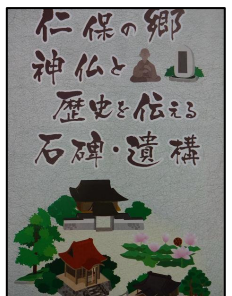 仁保の郷
神仏と
歴史を伝える
石碑・遺構